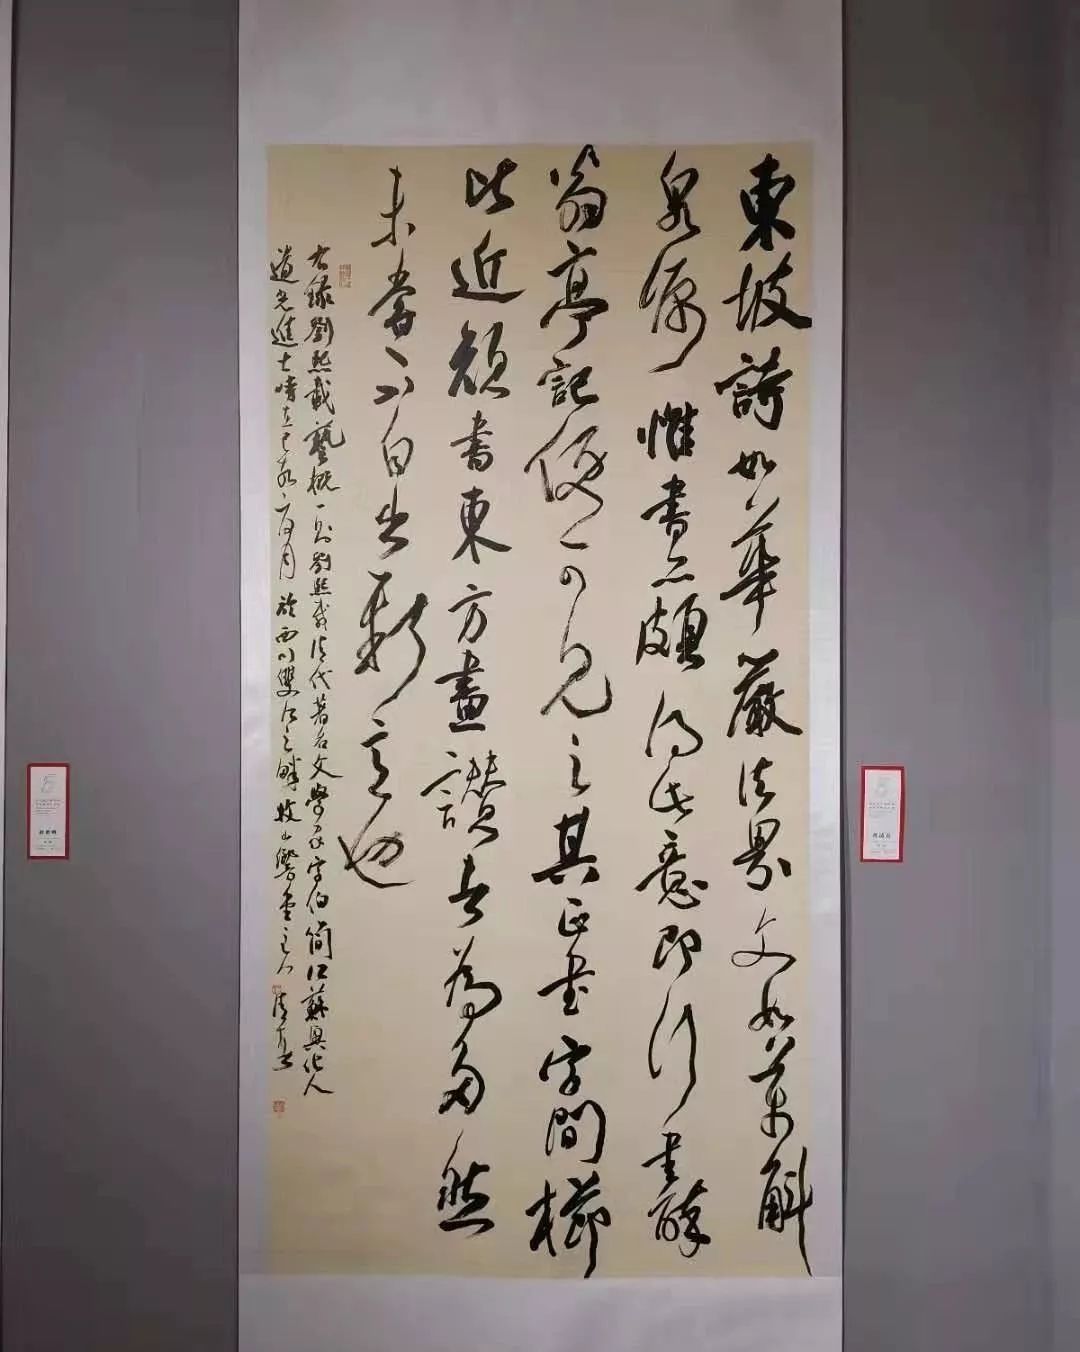 東坡詩如華嚴法界文如萬斛
泉源惟書亦頗得此意即行書醉
翁亭記便可見之其正書字間櫛
比近顏書東方畫讚者為多然
未嘗不自出新意也
右錄劉熙載藝概一則劉熙載清代著名文學家字伯簡江蘇興化人
道光進士時在己亥六月於西川雙江之畔牧山磬堂主人